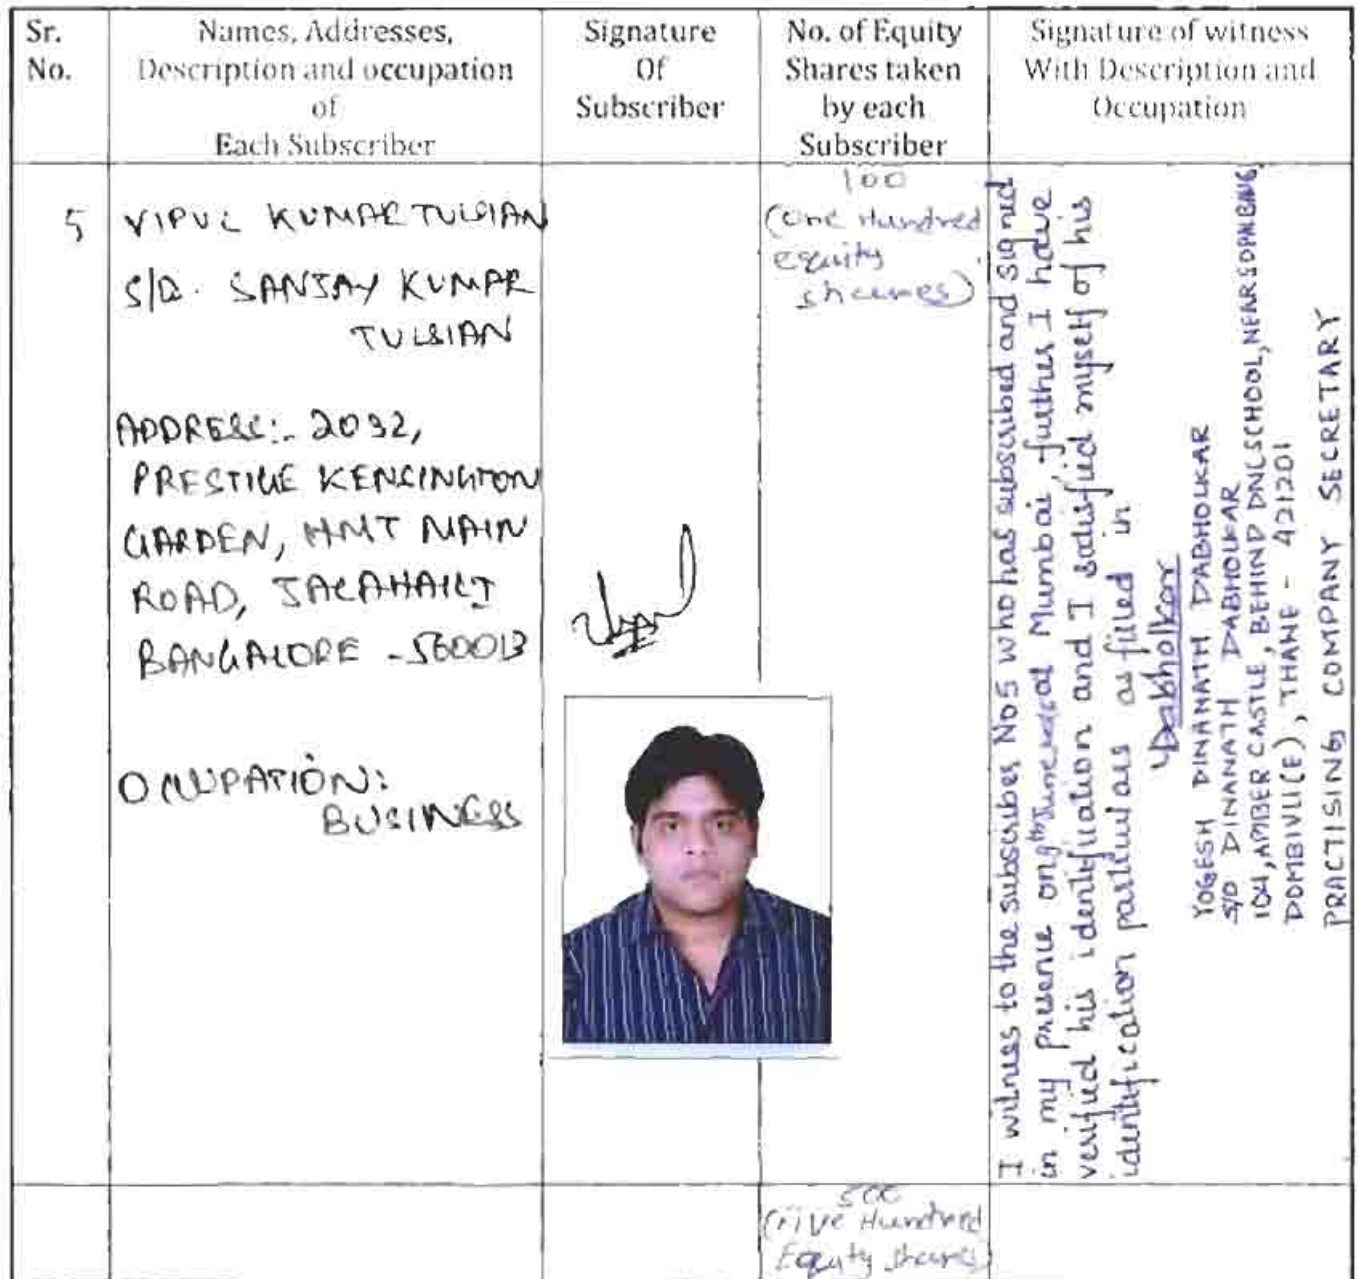 Sr.
No.
Names, Addresses,
Description and occupation
of
Each Subscriber
Signature
Of
Subscriber
No. of Equity
Shares taken
by each
Subscriber
Signature of witness
With Description and
Occupation
5
VIPUL KUMAR TULSIAN
S/O. SANJAY KUMAR
TULSIAN
ADDRESS:- 2032,
PRESTIGE KENSINGTON
GARDEN, HMT MAIN
ROAD, JALAHALLI
BANGALORE - 560013
OCCUPATION:
BUSINESS
100
(One Hundred
equity
shares)
I witness to the subscriber No 5 who has subscribed and signed
in my presence on 9th June at Mumbai, further I have
verified his identification and I satisfied myself of his
identification particulars as filled in
Dabholkar
YOGESH DINANATH DABHOLKAR
S/O DINANATH DABHOLKAR
104, AMBER CASTLE, BEHIND DNC SCHOOL, NEAR
DOMBIVLI(E), THANE - 421201
PRACTISING COMPANY SECRETARY
500
(Five Hundred
Equity shares)